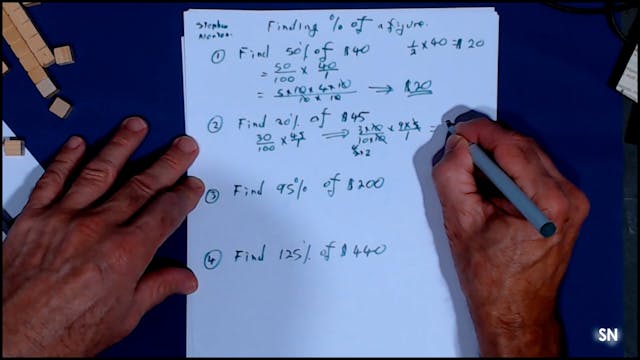 Stephen
Finding % of a figure.
① Find 50% of $40 1/2 × 40 = $ 20
= 50/100 × 40/1
= 5×10×4×10/10×10 → $20
② Find 30% of $45
30/100 × 45/1 ⇒ 3×10/10×10 × 9×5/1 =
5×2
③ Find 95% of $200
④ Find 125% of $440
SN